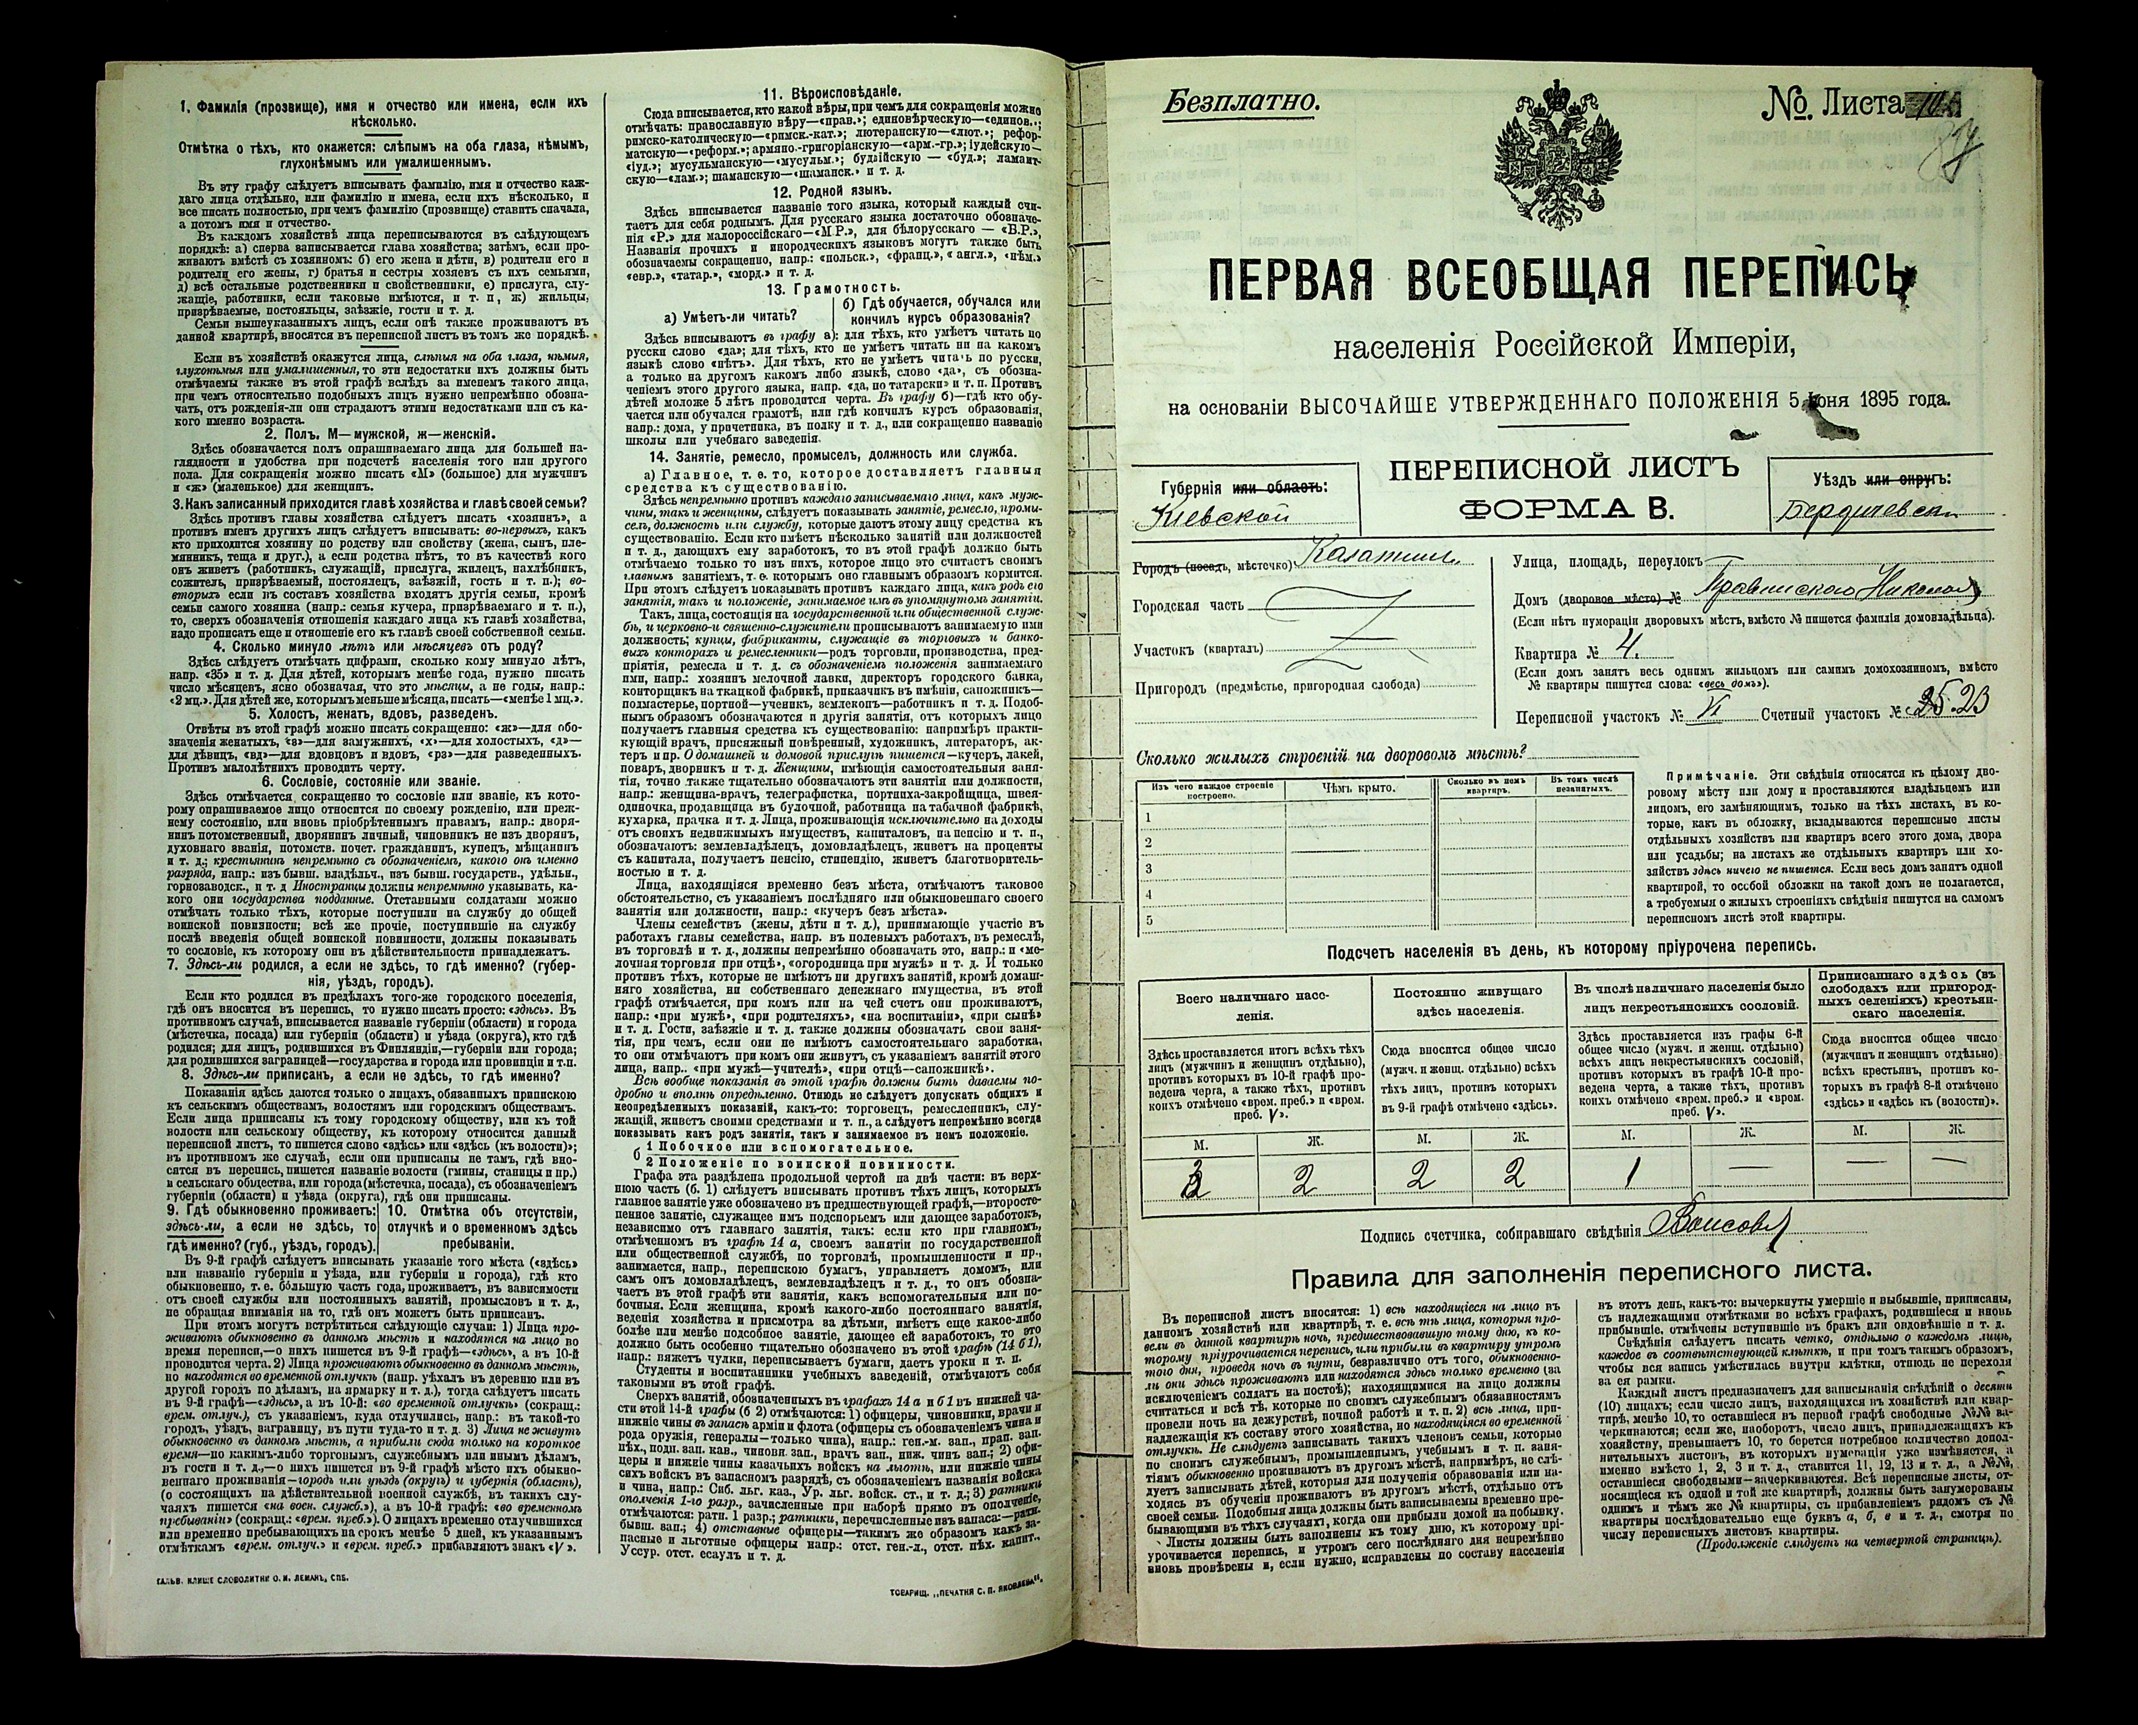 1. Фамилія (прозвище), имя и отчество или имена, если ихъ
нѣсколько.
Отмѣтка о тѣхъ, кто окажется: слѣпымъ на оба глаза, нѣмымъ,
глухонѣмымъ или умалишеннымъ.
Въ эту графу слѣдуетъ вписывать фамилію, имя и отчество каж-
даго лица отдѣльно, или фамилію и имена, если ихъ нѣсколько, и
все писать полностью, при чемъ фамилію (прозвище) ставить сначала,
а потомъ имя и отчество.
Въ каждомъ хозяйствѣ лица переписываются въ слѣдующемъ
порядкѣ: а) сперва записывается глава хозяйства; затѣмъ, если про-
живаютъ вмѣстѣ съ хозяиномъ: б) его жена и дѣти, в) родители его и
родители его жены, г) братья и сестры хозяевъ съ ихъ семьями,
д) всѣ остальные родственники и свойственники, е) прислуга, слу-
жащіе, работники, если таковые имѣются, и т. п, ж) жильцы,
призрѣваемые, постояльцы, заѣзжіе, гости и т. д.
Семьи вышеуказанныхъ лицъ, если онѣ также проживаютъ въ
данной квартирѣ, вносятся въ переписной листъ въ томъ же порядкѣ.
Если въ хозяйствѣ окажутся лица, слѣпыя на оба глаза, нѣмыя,
глухонѣмыя или умалишенныя, то эти недостатки ихъ должны быть
отмѣчаемы также въ этой графѣ вслѣдъ за именемъ такого лица,
при чемъ относительно подобныхъ лицъ нужно непремѣнно обозна-
чать, отъ рожденія-ли они страдаютъ этими недостатками или съ ка-
кого именно возраста.
2. Полъ. М—мужской, ж—женскій.
Здѣсь обозначается полъ опрашиваемаго лица для большей на-
глядности и удобства при подсчетѣ населенія того или другого
пола. Для сокращенія можно писать «М» (большое) для мужчинъ
и «ж» (маленькое) для женщинъ.
3. Какъ записанный приходится главѣ хозяйства и главѣ своей семьи?
Здѣсь противъ главы хозяйства слѣдуетъ писать «хозяинъ», а
противъ именъ другихъ лицъ слѣдуетъ вписывать: во-первыхъ, какъ
кто приходится хозяину по родству или свойству (жена, сынъ, пле-
мянникъ, теща и друг.), а если родства нѣтъ, то въ качествѣ кого
онъ живетъ (работникъ, служащій, прислуга, жилецъ, нахлѣбникъ,
сожитель, призрѣваемый, постоялецъ, заѣзжій, гость и т. п.); во-
вторыхъ если въ составъ хозяйства входятъ другія семьи, кромѣ
семьи самого хозяина (напр.: семья кучера, призрѣваемаго и т. п.),
то, сверхъ обозначенія отношенія каждаго лица къ главѣ хозяйства,
надо прописать еще и отношеніе его къ главѣ своей собственной семьи.
4. Сколько минуло лѣтъ или мѣсяцевъ отъ роду?
Здѣсь слѣдуетъ отмѣчать цифрами, сколько кому минуло лѣтъ,
напр. «35» и т. д. Для дѣтей, которымъ менѣе года, нужно писать
число мѣсяцевъ, ясно обозначая, что это мѣсяцы, а не годы, напр.:
«2 мц.». Для дѣтей же, которымъ меньше мѣсяца, писать—«менѣе 1 мц.».
5. Холостъ, женатъ, вдовъ, разведенъ.
Отвѣты въ этой графѣ можно писать сокращенно: «ж»—для обо-
значенія женатыхъ, «з»—для замужнихъ, «х»—для холостыхъ, «д»—
для дѣвицъ, «вд»—для вдовцовъ и вдовъ, «рз»—для разведенныхъ.
Противъ малолѣтнихъ проводить черту.
6. Сословіе, состояніе или званіе.
Здѣсь отмѣчается сокращенно то сословіе или званіе, къ кото-
рому опрашиваемое лицо относится по своему рожденію, или преж-
нему состоянію, или вновь пріобрѣтеннымъ правамъ, напр.: дворя-
нинъ потомственный, дворянинъ личный, чиновникъ не изъ дворянъ,
духовнаго званія, потомств. почет. гражданинъ, купецъ, мѣщанинъ
и т. д.; крестьянинъ непремѣнно съ обозначеніемъ, какого онъ именно
разряда, напр.: изъ бывш. владѣльч., изъ бывш. государств., удѣльн.,
горнозаводск., и т. д Иностранцы должны непремѣнно указывать, ка-
кого они государства подданные. Отставными солдатами можно
отмѣчать только тѣхъ, которые поступили на службу до общей
воинской повинности; всѣ же прочіе, поступившіе на службу
послѣ введенія общей воинской повинности, должны показывать
то сословіе, къ которому они въ дѣйствительности принадлежатъ.
7. Здѣсь-ли родился, а если не здѣсь, то гдѣ именно? (губер-
нія, уѣздъ, городъ).
Если кто родился въ предѣлахъ того-же городского поселенія,
гдѣ онъ вносится въ перепись, то нужно писать просто: «здѣсь». Въ
противномъ случаѣ, вписывается названіе губерніи (области) и города
(мѣстечка, посада) или губерніи (области) и уѣзда (округа), кто гдѣ
родился; для лицъ, родившихся въ Финляндіи,—губерніи или города;
для родившихся заграницей—государства и города или провинціи и т.п.
8. Здѣсь-ли приписанъ, а если не здѣсь, то гдѣ именно?
Показанія здѣсь даются только о лицахъ, обязанныхъ припискою
къ сельскимъ обществамъ, волостямъ или городскимъ обществамъ.
Если лица приписаны къ тому городскому обществу, или къ той
волости или сельскому обществу, къ которому относится данный
переписной листъ, то пишется слово «здѣсь» или «здѣсь (къ волости)»;
въ противномъ же случаѣ, если они приписаны не тамъ, гдѣ вно-
сятся въ перепись, пишется названіе волости (гмины, станицы и пр.)
и сельскаго общества, или города (мѣстечка, посада), съ обозначеніемъ
губерніи (области) и уѣзда (округа), гдѣ они приписаны.
9. Гдѣ обыкновенно проживаетъ:
здѣсь-ли, а если не здѣсь, то
гдѣ именно? (губ., уѣздъ, городъ).
10. Отмѣтка объ отсутствіи,
отлучкѣ и о временномъ здѣсь
пребываніи.
Въ 9-й графѣ слѣдуетъ вписывать указаніе того мѣста («здѣсь»
или названіе губерніи и уѣзда, или губерніи и города), гдѣ кто
обыкновенно, т. е. бо́льшую часть года, проживаетъ, въ зависимости
отъ своей службы или постоянныхъ занятій, промысловъ и т. д.,
не обращая вниманія на то, гдѣ онъ можетъ быть приписанъ.
При этомъ могутъ встрѣтиться слѣдующіе случаи: 1) Лица про-
живаютъ обыкновенно въ данномъ мѣстѣ и находятся на лицо во
время переписи,—о нихъ пишется въ 9-й графѣ—«здѣсь», а въ 10-й
проводится черта. 2) Лица проживаютъ обыкновенно въ данномъ мѣстѣ,
но находятся во временной отлучкѣ (напр. уѣхалъ въ деревню или въ
другой городъ по дѣламъ, на ярмарку и т. д.), тогда слѣдуетъ писать
въ 9-й графѣ—«здѣсь», а въ 10-й: «во временной отлучкѣ» (сокращ.:
врем. отлуч.), съ указаніемъ, куда отлучились, напр.: въ такой-то
городъ, уѣздъ, заграницу, въ пути туда-то и т. д. 3) Лица не живутъ
обыкновенно въ данномъ мѣстѣ, а прибыли сюда только на короткое
время—по какимъ-либо торговымъ, служебнымъ или инымъ дѣламъ,
въ гости и т. д.,—о нихъ пишется въ 9-й графѣ мѣсто ихъ обыкно-
веннаго проживанія—городъ или уѣздъ (округъ) и губернія (область),
(о состоящихъ на дѣйствительной военной службѣ, въ такихъ слу-
чаяхъ пишется «на воен. служб.»), а въ 10-й графѣ: «во временномъ
пребываніи» (сокращ.: «врем. преб.»). О лицахъ временно отлучившихся
или временно пребывающихъ на срокъ менѣе 5 дней, къ указаннымъ
отмѣткамъ «врем. отлуч.» и «врем. преб.» прибавляютъ знакъ «V».
ГАЛЬВ. КЛИШЕ СЛОВОЛИТНИ О. И. ЛЕМАНЪ, СПБ.
11. Вѣроисповѣданіе.
Сюда вписывается, кто какой вѣры, при чемъ для сокращенія можно
отмѣчать: православную вѣру—«прав.»; единовѣрческую—«единов.»;
римско-католическую—«римск.-кат.»; лютеранскую—«лют.»; рефор-
матскую—«реформ.»; армяно-григоріанскую—«арм.-гр.»; іудейскую—
«іуд.»; мусульманскую—«мусульм.»; буддійскую — «буд.»; ламаит-
скую—«лам.»; шаманскую—«шаманск.» и т. д.
12. Родной языкъ.
Здѣсь вписывается названіе того языка, который каждый счи-
таетъ для себя роднымъ. Для русскаго языка достаточно обозначе-
нія «Р.» для малороссійскаго—«М Р.», для бѣлорусскаго — «Б.Р.»,
Названія прочихъ и инородческихъ языковъ могутъ также быть
обозначаемы сокращенно, напр.: «польск.», «франц.», « англ.», «нѣм.»
«евр.», «татар.», «морд.» и т. д.
13. Грамотность.
а) Умѣетъ-ли читать?
б) Гдѣ обучается, обучался или
кончилъ курсъ образованія?
Здѣсь вписываютъ въ графу а): для тѣхъ, кто умѣетъ читать по
русски слово «да»; для тѣхъ, кто не умѣетъ читать ни на какомъ
языкѣ слово «нѣтъ». Для тѣхъ, кто не умѣетъ читать по русски,
а только на другомъ какомъ либо языкѣ, слово «да», съ обозна-
ченіемъ этого другого языка, напр. «да, по татарски» и т. п. Противъ
дѣтей моложе 5 лѣтъ проводится черта. Въ графу б)—гдѣ кто обу-
чается или обучался грамотѣ, или гдѣ кончилъ курсъ образованія,
напр.: дома, у причетника, въ полку и т. д., или сокращенно названіе
школы или учебнаго заведенія.
14. Занятіе, ремесло, промыселъ, должность или служба.
а) Главное, т. е. то, которое доставляетъ главныя
средства къ существованію.
Здѣсь непремѣнно противъ каждаго записываемаго лица, какъ муж-
чины, такъ и женщины, слѣдуетъ показывать занятіе, ремесло, промы-
селъ, должность или службу, которые даютъ этому лицу средства къ
существованію. Если кто имѣетъ нѣсколько занятій или должностей
и т. д., дающихъ ему заработокъ, то въ этой графѣ должно быть
отмѣчаемо только то изъ нихъ, которое лицо это считаетъ своимъ
главнымъ занятіемъ, т. е. которымъ оно главнымъ образомъ кормится.
При этомъ слѣдуетъ показывать противъ каждаго лица, какъ родъ его
занятія, такъ и положеніе, занимаемое имъ въ упомянутомъ занятіи.
Такъ, лица, состоящія на государственной или общественной служ-
бѣ, и церковно-и священно-служители прописываютъ занимаемую ими
должность; купцы, фабриканты, служащіе въ торговыхъ и банко-
выхъ конторахъ и ремесленники—родъ торговли, производства, пред-
пріятія, ремесла и т. д. съ обозначеніемъ положенія занимаемаго
ими, напр.: хозяинъ мелочной лавки, директоръ городского банка,
конторщикъ на ткацкой фабрикѣ, приказчикъ въ имѣніи, сапожникъ—
подмастерье, портной—ученикъ, землекопъ—работникъ и т. д. Подоб-
нымъ образомъ обозначаются и другія занятія, отъ которыхъ лицо
получаетъ главныя средства къ существованію: напримѣръ практи-
кующій врачъ, присяжный повѣренный, художникъ, литераторъ, ак-
теръ и пр. О домашней и домовой прислугѣ пишется—кучеръ, лакей,
поваръ, дворникъ и т. д. Женщины, имѣющія самостоятельныя заня-
тія, точно также тщательно обозначаютъ эти занятія или должности,
напр.: женщина-врачъ, телеграфистка, портниха-закройщица, швея-
одиночка, продавщица въ булочной, работница на табачной фабрикѣ,
кухарка, прачка и т. д. Лица, проживающія исключительно на доходы
отъ своихъ недвижимыхъ имуществъ, капиталовъ, на пенсію и т. п.,
обозначаютъ: землевладѣлецъ, домовладѣлецъ, живетъ на проценты
съ капитала, получаетъ пенсію, стипендію, живетъ благотворитель-
ностью и т. д.
Лица, находящіяся временно безъ мѣста, отмѣчаютъ таковое
обстоятельство, съ указаніемъ послѣдняго или обыкновеннаго своего
занятія или должности, напр.: «кучеръ безъ мѣста».
Члены семействъ (жены, дѣти и т. д.), принимающіе участіе въ
работахъ главы семейства, напр. въ полевыхъ работахъ, въ ремеслѣ,
въ торговлѣ и т. д., должны непремѣнно обозначать это, напр.: и «ме-
лочная торговля при отцѣ», «огородница при мужѣ» и т. д. И только
противъ тѣхъ, которые не имѣютъ ни другихъ занятій, кромѣ домаш-
няго хозяйства, ни собственнаго денежнаго имущества, въ этой
графѣ отмѣчается, при комъ или на чей счетъ они проживаютъ,
напр.: «при мужѣ», «при родителяхъ», «на воспитаніи», «при сынѣ»
и т. д. Гости, заѣзжіе и т. д. также должны обозначать свои заня-
тія, при чемъ, если они не имѣютъ самостоятельнаго заработка,
то они отмѣчаютъ при комъ они живутъ, съ указаніемъ занятій этого
лица, напр.. «при мужѣ—учителѣ», «при отцѣ—сапожникѣ».
Всѣ вообще показанія въ этой графѣ должны быть даваемы по-
дробно и вполнѣ опредѣленно. Отнюдь не слѣдуетъ допускать общихъ и
неопредѣленныхъ показаній, какъ-то: торговецъ, ремесленникъ, слу-
жащій, живетъ своими средствами и т. п., а слѣдуетъ непремѣнно всегда
показывать какъ родъ занятія, такъ и занимаемое въ немъ положеніе.
б
1 Побочное или вспомогательное.
2 Положеніе по воинской повинности.
Графа эта раздѣлена продольной чертой на двѣ части: въ верх-
нюю часть (б. 1) слѣдуетъ вписывать противъ тѣхъ лицъ, которыхъ
главное занятіе уже обозначено въ предшествующей графѣ,—второсте-
пенное занятіе, служащее имъ подспорьемъ или дающее заработокъ,
независимо отъ главнаго занятія, такъ: если кто при главномъ,
отмѣченномъ въ графѣ 14 а, своемъ занятіи по государственной
или общественной службѣ, по торговлѣ, промышленности и пр.,
занимается, напр., перепискою бумагъ, управляетъ домомъ, или
самъ онъ домовладѣлецъ, землевладѣлецъ и т. д., то онъ обозна-
чаетъ въ этой графѣ эти занятія, какъ вспомогательныя или по-
бочныя. Если женщина, кромѣ какого-либо постояннаго занятія,
веденія хозяйства и присмотра за дѣтьми, имѣетъ еще какое-либо
болѣе или менѣе подсобное занятіе, дающее ей заработокъ, то это
должно быть особенно тщательно обозначено въ этой графѣ (14 б 1),
напр.: вяжетъ чулки, переписываетъ бумаги, даетъ уроки и т. п.
Студенты и воспитанники учебныхъ заведеній, отмѣчаютъ себя
таковыми въ этой графѣ.
Сверхъ занятій, обозначенныхъ въ графахъ 14 а и б 1 въ нижней ча-
сти этой 14-й графы (б 2) отмѣчаются: 1) офицеры, чиновники, врачи и
нижніе чины въ запасѣ арміи и флота (офицеры съ обозначеніемъ чина и
рода оружія, генералы—только чина), напр.: ген.-м. зап., прап. зап.
пѣх., подп. зап. кав., чиновн. зап., врачъ зап., ниж. чинъ зап.; 2) офи-
церы и нижніе чины казачьихъ войскъ на льготѣ, или нижніе чины
сихъ войскъ въ запасномъ разрядѣ, съ обозначеніемъ названія войска
и чина, напр.: Сиб. льг. каз., Ур. льг. войск. ст., и т. д.; 3) ратники
ополченія 1-го разр., зачисленные при наборѣ прямо въ ополченіе,
отмѣчаются: ратн. 1 разр.; ратники, перечисленные изъ запаса:—ратн.
бывш. зап.; 4) отставные офицеры—такимъ же образомъ какъ за-
пасные и льготные офицеры напр.: отст. ген.-л., отст. пѣх. капит.,
Уссур. отст. есаулъ и т. д.
ТОВАРИЩ. „ПЕЧАТНЯ С. П. ЯКОВЛЕВА“.
Безплатно.
№. Листа
ПЕРВАЯ ВСЕОБЩАЯ ПЕРЕПИСЬ
населенія Россійской Имперіи,
на основаніи ВЫСОЧАЙШЕ УТВЕРЖДЕННАГО ПОЛОЖЕНІЯ 5 Іюня 1895 года.
ПЕРЕПИСНОЙ ЛИСТЪ
ФОРМА В.
Губернія или область:
Кіевской
Уѣздъ или округъ:
Бердичевски
Городъ (посадъ, мѣстечко) Казатинъ
Городская часть
Участокъ (кварталъ)
Пригородъ (предмѣстье, пригородная слобода)
Улица, площадь, переулокъ
Домъ (дворовое мѣсто) №
(Если нѣтъ нумераціи дворовыхъ мѣстъ, вмѣсто № пишется фамилія домовладѣльца).
Квартира № 4.
(Если домъ занятъ весь однимъ жильцомъ или самимъ домохозяиномъ, вмѣсто
№ квартиры пишутся слова: «весь домъ»).
Переписной участокъ № VI Счетный участокъ № 23
Сколько жилыхъ строеній на дворовомъ мѣстѣ?
Изъ чего каждое строеніе
построено.
Чѣмъ крыто.
Сколько въ немъ
квартиръ.
Въ томъ числѣ
незанятыхъ.
1
2
3
4
5
Примѣчаніе. Эти свѣдѣнія относятся къ цѣлому дво-
ровому мѣсту или дому и проставляются владѣльцемъ или
лицомъ, его замѣняющимъ, только на тѣхъ листахъ, въ ко-
торые, какъ въ обложку, вкладываются переписные листы
отдѣльныхъ хозяйствъ или квартиръ всего этого дома, двора
или усадьбы; на листахъ же отдѣльныхъ квартиръ или хо-
зяйствъ здѣсь ничего не пишется. Если весь домъ занятъ одной
квартирой, то особой обложки на такой домъ не полагается,
а требуемыя о жилыхъ строеніяхъ свѣдѣнія пишутся на самомъ
переписномъ листѣ этой квартиры.
Подсчетъ населенія въ день, къ которому пріурочена перепись.
Всего наличнаго насе-
ленія.
Постоянно живущаго
здѣсь населенія.
Въ числѣ наличнаго населенія было
лицъ некрестьянскихъ сословій.
Приписаннаго здѣсь (въ
слободахъ или пригород-
ныхъ селеніяхъ) крестьян-
скаго населенія.
Здѣсь проставляется итогъ всѣхъ тѣхъ
лицъ (мужчинъ и женщинъ отдѣльно),
противъ которыхъ въ 10-й графѣ про-
ведена черта, а также тѣхъ, противъ
коихъ отмѣчено «врем. преб.» и «врем.
преб. V».
Сюда вносится общее число
(мужч. и женщ. отдѣльно) всѣхъ
тѣхъ лицъ, противъ которыхъ
въ 9-й графѣ отмѣчено «здѣсь».
Здѣсь проставляется изъ графы 6-й
общее число (мужч. и женщ. отдѣльно)
всѣхъ лицъ некрестьянскихъ сословій,
противъ которыхъ въ графѣ 10-й про-
ведена черта, а также тѣхъ, противъ
коихъ отмѣчено «врем. преб.» и «врем.
преб. V».
Сюда вносится общее число
(мужчинъ и женщинъ отдѣльно)
всѣхъ крестьянъ, противъ ко-
торыхъ въ графѣ 8-й отмѣчено
«здѣсь» и «здѣсь къ (волости)».
М. Ж. М. Ж. М. Ж. М. Ж.
2 2 2 2 1 — — —
Подпись счетчика, собиравшаго свѣдѣнія
Правила для заполненія переписного листа.
Въ переписной листъ вносятся: 1) всѣ находящіеся на лицо въ
данномъ хозяйствѣ или квартирѣ, т. е. всѣ тѣ лица, которыя про-
вели въ данной квартирѣ ночь, предшествовавшую тому дню, къ ко-
торому пріурочивается перепись, или прибыли въ квартиру утромъ
того дня, проведя ночь въ пути, безразлично отъ того, обыкновенно-
ли они здѣсь проживаютъ или находятся здѣсь только временно (за
исключеніемъ солдатъ на постоѣ); находящимися на лицо должны
считаться и всѣ тѣ, которые по своимъ служебнымъ обязанностямъ
провели ночь на дежурствѣ, ночной работѣ и т. п. 2) всѣ лица, при-
надлежащія къ составу этого хозяйства, но находящіяся во временной
отлучкѣ. Не слѣдуетъ записывать такихъ членовъ семьи, которые
по своимъ служебнымъ, промышленнымъ, учебнымъ и т. п. заня-
тіямъ обыкновенно проживаютъ въ другомъ мѣстѣ, напримѣръ, не слѣ-
дуетъ записывать дѣтей, которыя для полученія образованія или на-
ходясь въ обученіи проживаютъ въ другомъ мѣстѣ, отдѣльно отъ
своей семьи. Подобныя лица должны быть записываемы временно пре-
бывающими въ тѣхъ случаяхъ, когда они прибыли домой на побывку.
Листы должны быть заполнены къ тому дню, къ которому прі-
урочивается перепись, и утромъ сего послѣдняго дня непремѣнно
вновь провѣрены и, если нужно, исправлены по составу населенія
въ этотъ день, какъ-то: вычеркнуты умершіе и выбывшіе, приписаны,
съ надлежащими отмѣтками во всѣхъ графахъ, родившіеся и вновь
прибывшіе, отмѣчены вступившіе въ бракъ или овдовѣвшіе и т. д.
Свѣдѣнія слѣдуетъ писать четко, отдѣльно о каждомъ лицѣ,
каждое въ соотвѣтствующей клѣткѣ, и при томъ такимъ образомъ,
чтобы вся запись умѣстилась внутри клѣтки, отнюдь не переходя
за ея рамки.
Каждый листъ предназначенъ для записыванія свѣдѣній о десяти
(10) лицахъ; если число лицъ, находящихся въ хозяйствѣ или квар-
тирѣ, менѣе 10, то оставшіеся въ первой графѣ свободные №№ за-
черкиваются; если же, наоборотъ, число лицъ, принадлежащихъ къ
хозяйству, превышаетъ 10, то берется потребное количество допол-
нительныхъ листовъ, въ которыхъ нумерація уже измѣняется, а
именно вмѣсто 1, 2, 3 и т. д., ставится 11, 12, 13 и т. д., а №№,
оставшіеся свободными—зачеркиваются. Всѣ переписные листы, от-
носящіеся къ одной и той же квартирѣ, должны быть занумерованы
однимъ и тѣмъ же № квартиры, съ прибавленіемъ рядомъ съ №
квартиры послѣдовательно еще буквъ а, б, в и т. д., смотря по
числу переписныхъ листовъ квартиры.
(Продолженіе слѣдуетъ на четвертой страницѣ).